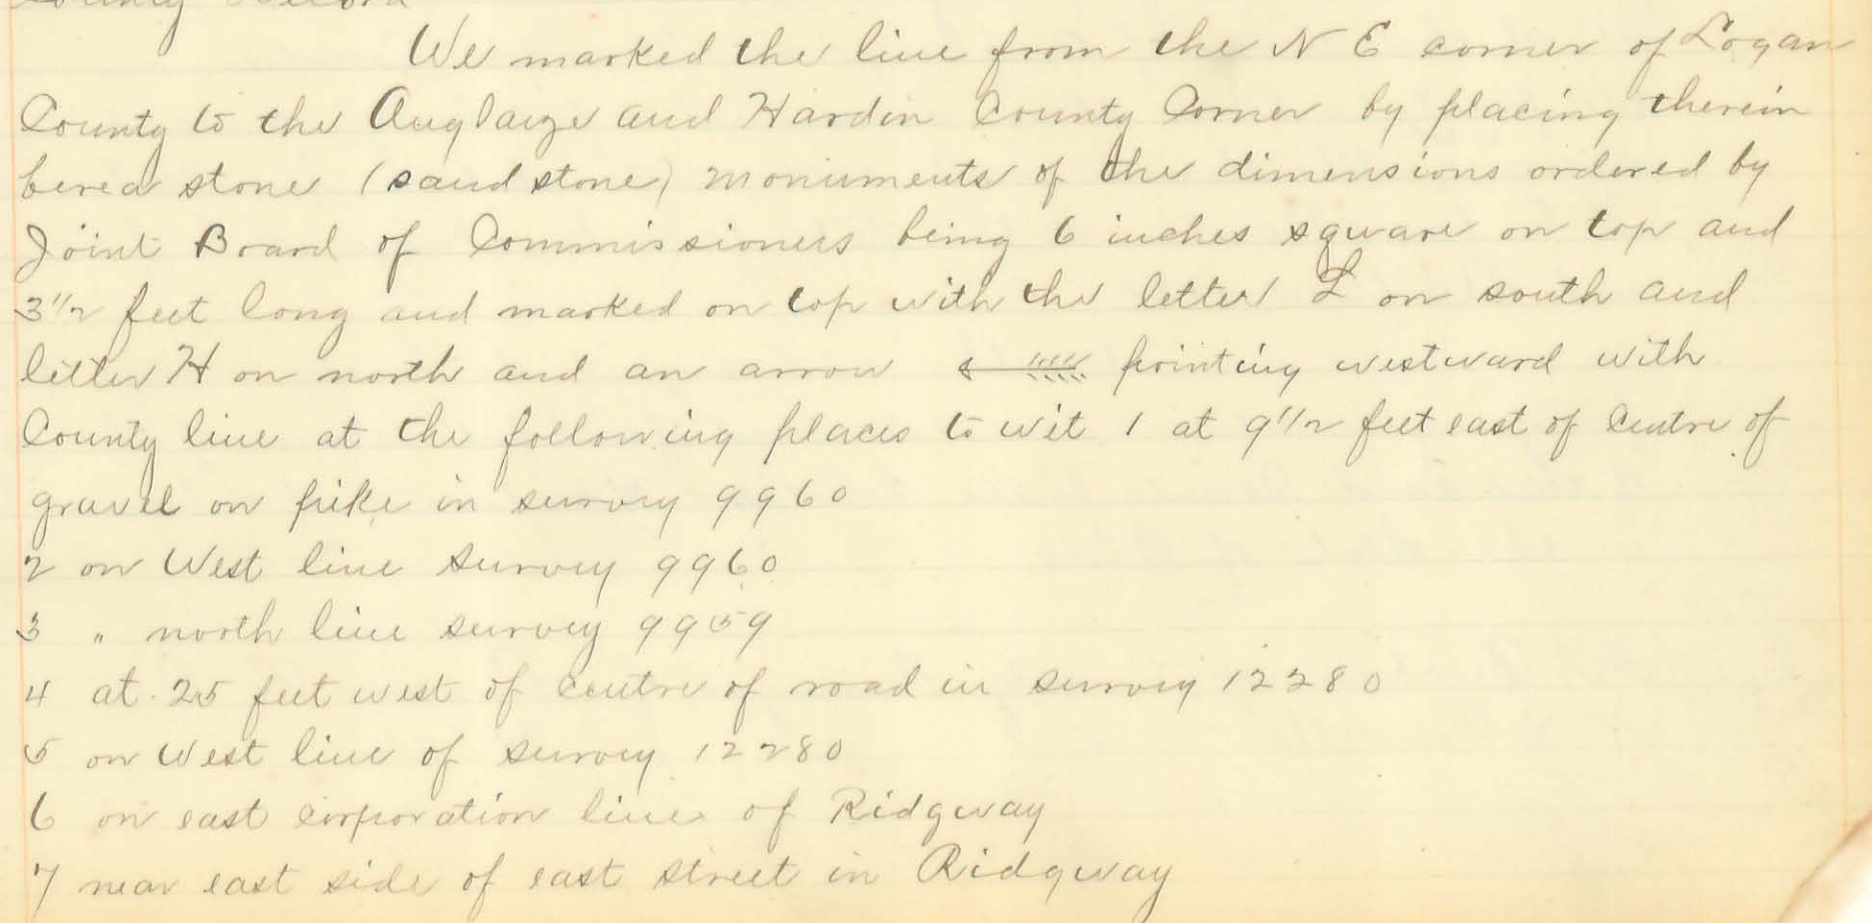 County Record
We marked the line from the N E corner of Logan
County to the Auglaize and Hardin County Corner by placing therein
berea stone (sand stone) monuments of the dimensions ordered by
Joint Board of Commissioners being 6 inches square on top and
3 1/2 feet long and marked on top with the letter L on south and
letter H on north and an arrow ← pointing westward with
County line at the following places to wit 1 at 9 1/2 feet east of Centre of
gravel on pike in survey 9960
2 on West line survey 9960
3 " north line survey 9959
4 at 25 feet west of centre of road in survey 12280
5 on West line of survey 12280
6 on east corporation line of Ridgway
7 near east side of east street in Ridgway